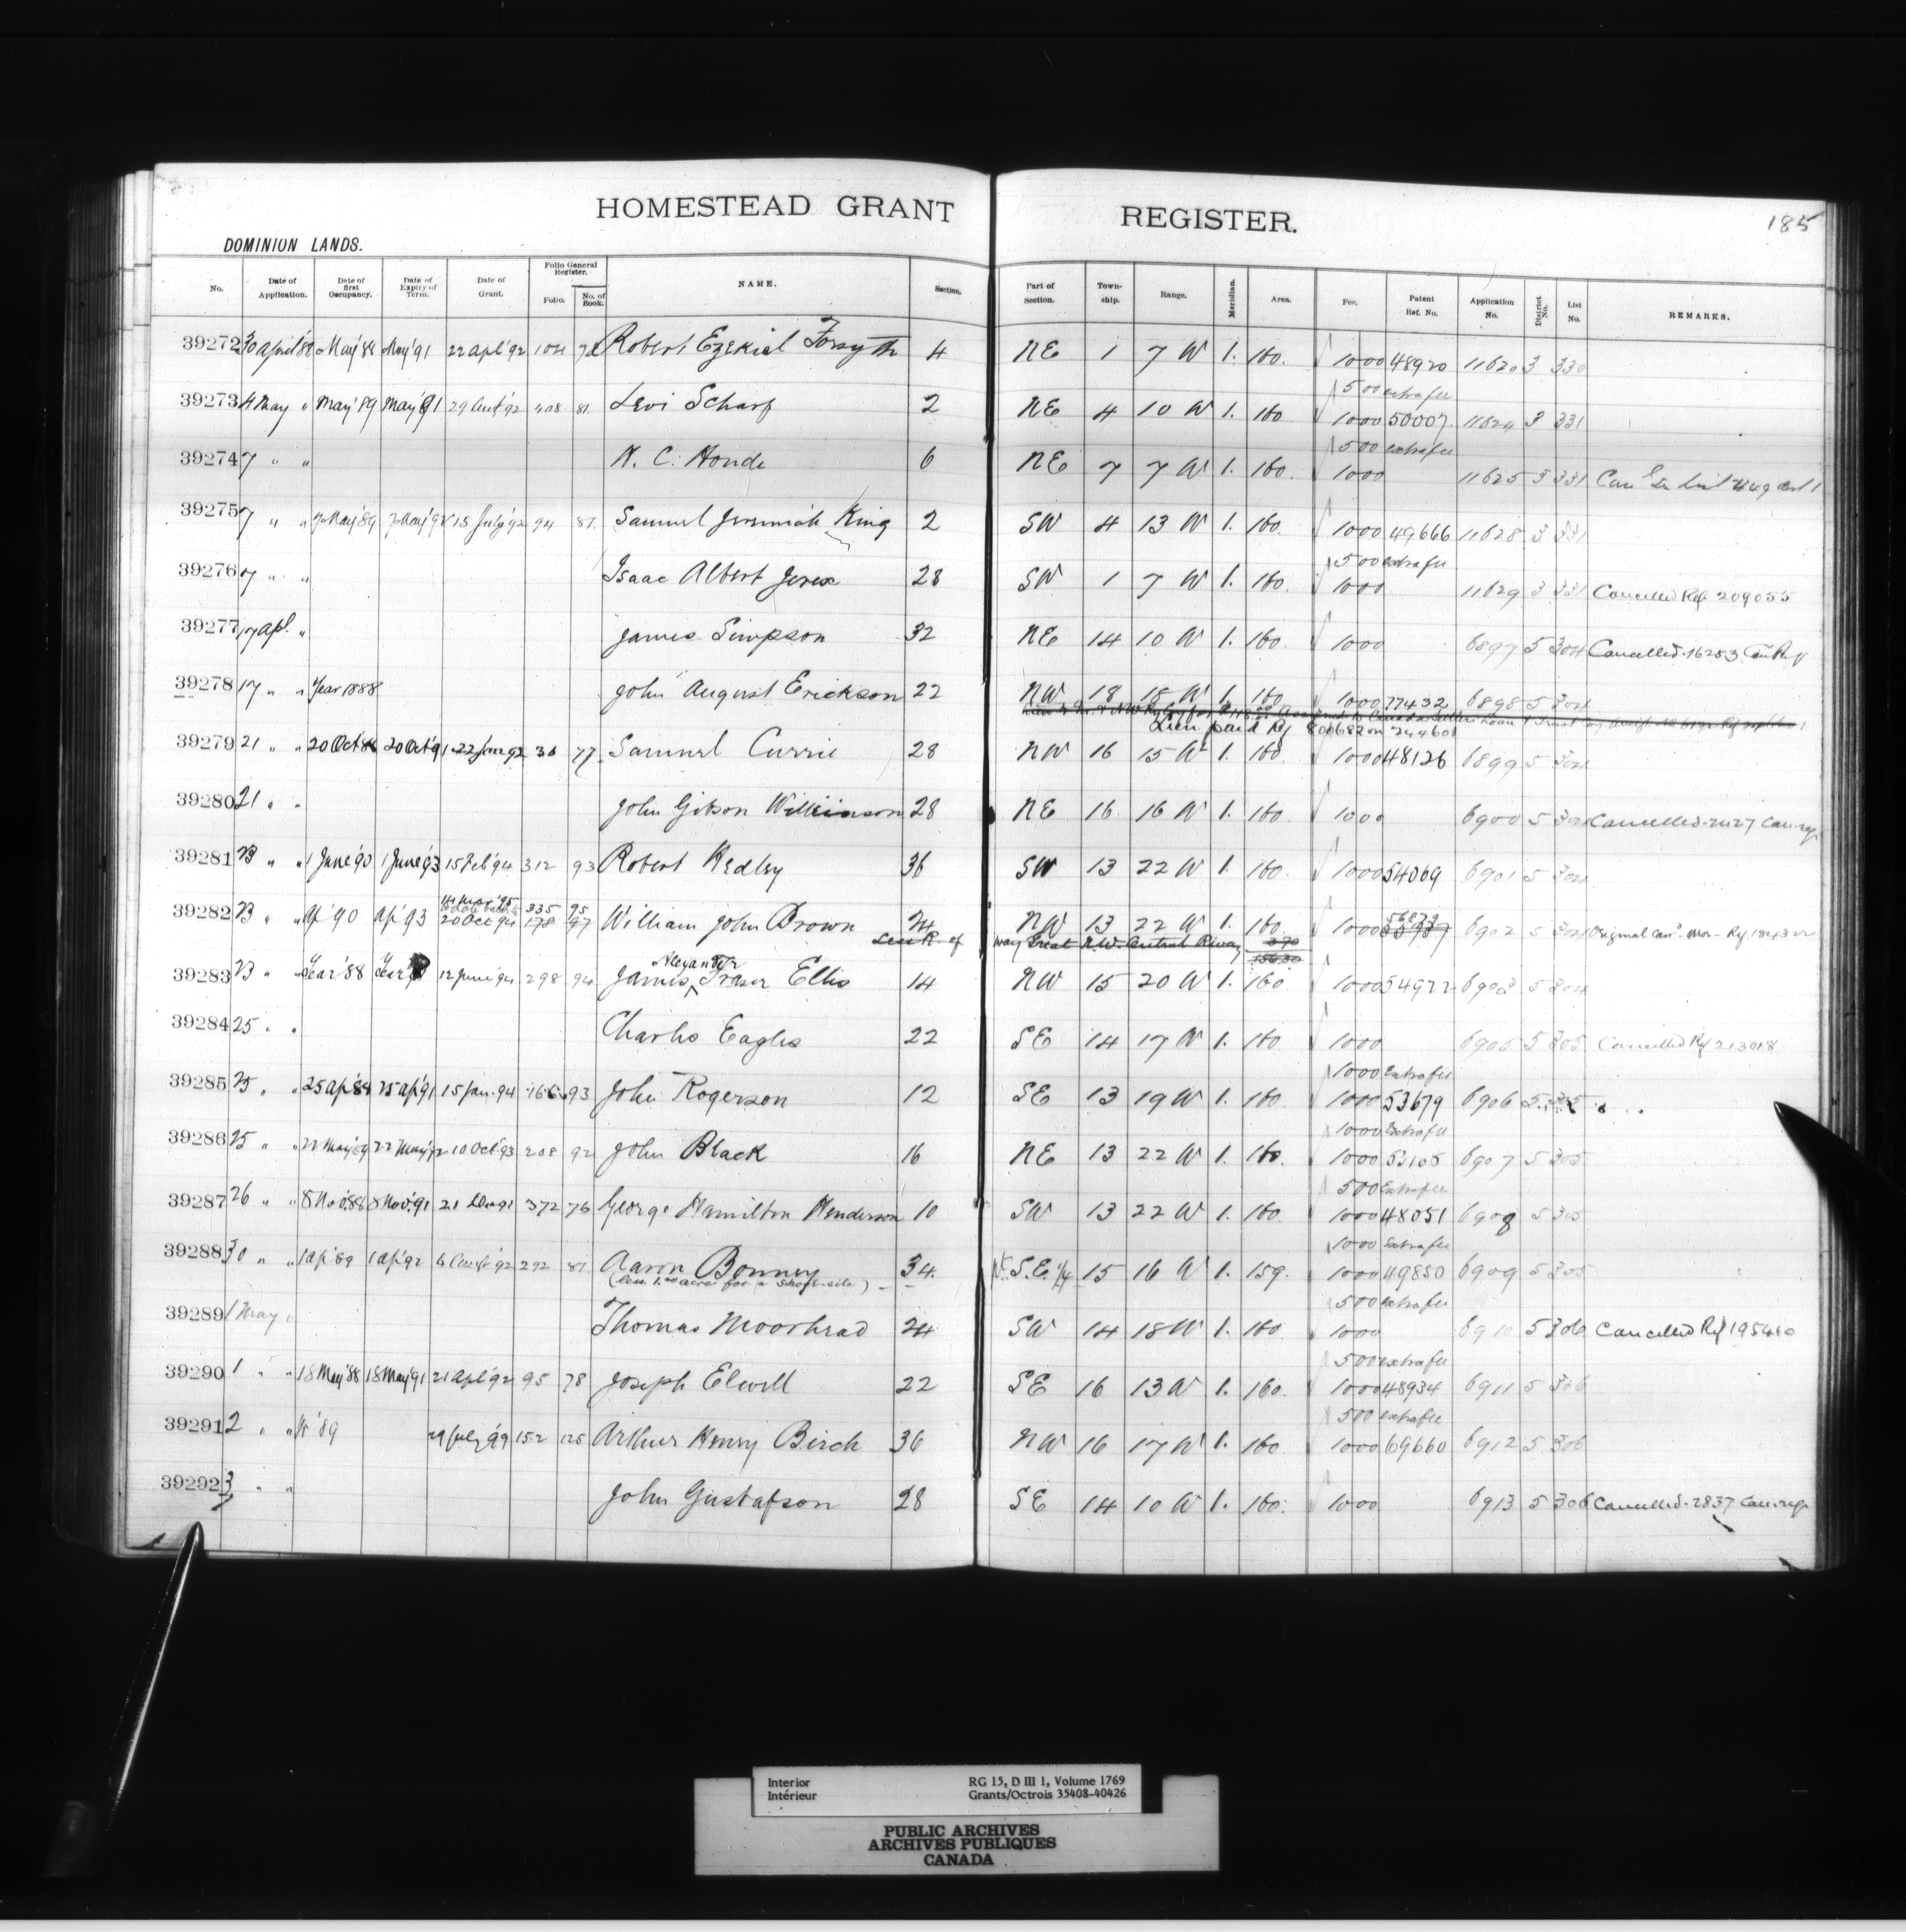 HOMESTEAD GRANT REGISTER.
185
DOMINION LANDS.
No. Date of Application. Date of first Occupancy. Date of Expiry of Term. Date of Grant. Folio General Register. Folio. No. of Book. NAME. Section. Part of Section. Town-ship. Range. Meridian. Area. Fee. Patent Ref. No. Application No. District No. List No. REMARKS.
39272 30 April '89 May '88 May '91 22 Apl '92 104 Robert Ezekiel Forsyth 4 NE 1 7 W 1. 160. 1000 48920 11620 3 330
500 extra fee
39273 4 May " May '89 May 91 29 Augt '92 408 81 Levi Scharf 2 NE 4 10 W 1. 160 1000 50007 11624 3 331
500 extra fee
39274 7 " " N. C. Honde 6 NE 7 7 W 1. 160. 1000 11625 3 331
39275 7 " " 7 May '89 7 May '92 15 July '92 94 81. Samuel Jeremiah King 2 SW 4 13 W 1. 160. 1000 49666 11628 3 331
500 extra fee
39276 7 " " Isaac Albert 28 SW 1 7 W 1. 160. 1000 11629 3 331 Cancelled Ref 209055
39277 17 Apl. " James Simpson 32 NE 14 10 W 1. 160. 1000 6897 5 304 Cancelled. 16253
39278 17 " " Year 1888 John August Erickson 22 NW 18 15 W 1. 160 1000 77432 6898 5 304
Lien paid Rf 800682 on 244601
39279 21 " " 20 Oct 88 20 Oct '91 22 Jan 92 30 77. Samuel Currie 28 NW 16 15 W 1. 160. 1000 48126 6899 5 304
39280 21 " " John Gibson Wilkinson 28 NE 16. 16 W 1. 160. 1000 6900 5 304 Cancelled
39281 23 " " 1 June '90 1 June '93 15 Feb '94 312 93 Robert Hedley 36 SW 13 22 W 1. 160. 1000 54069 6901 5 304
14 Mar '95 335 95
39282 23 " " Ap '90 Ap '93 20 Oct 94 178 97 William John Brown 24 NW 13 22 W 1. 160. 1000 56873 6902 5 304 Original Can
Less R. of way Great N.W. Central R'way 3.70
156.30
Alexander
39283 23 " " Year '88 Year 12 June '94 298 94 James Fraser Ellis 14 NW 15 20 W 1. 160. 1000 54977 6903 5 304
39284 25 " " Charles Eagles 22 SE 14 17 W 1. 160 1000 6905 5 305 Cancelled Rf 213018
1000 Extra fee
39285 25 " " 25 Ap '88 25 Ap '91 15 Jan. 94 166 93 John Rogerson 12 SE 13 19 W 1. 160 1000 53679 6906 5 305
1000 Extra fee
39286 25 " " 22 May '89 22 May '92 10 Oct '93 208 92 John Black 16 NE 13 22 W 1. 160. 1000 6907 5 305
500 Extra fee
39287 26 " " 8 Nov. 88 8 Nov. '91 21 Dec 91 372 76 George Hamilton Henderson 10 SW 13 22 W 1. 160. 1000 48051 6908 5 305
1000 Extra fee
39288 30 " " 1 Ap '89 1 Ap '92 6 Augt '92 292 81 Aaron Bonney 34. Pt. S.E. 1/4 15 16 W 1. 159. 1000 49850 6909 5 305
(less 1.00 acre for a School-site)
500 extra fee
39289 1 May " Thomas Moorhead 24 SW 14 18 W 1. 160 1000 6910 5 306 Cancelled Rf 195480
500 extra fee
39290 1 " " 18 May '88 18 May '91 21 Apl '92 95 78 Joseph Elwell 22 SE 16 13 W 1. 160. 1000 48934 6911 5 306
500 extra fee
39291 2 " " '89 29 July '99 152 125 Arthur Henry Birch 36 NW 16 17 W 1. 160. 1000 69660 6912 5 306
39292 3 " " John Gustafson 28 SE 14 10 W 1. 160. 1000 6913 5 306 Cancelled. 2837
Interior RG 15, D III 1, Volume 1769
Intérieur Grants/Octrois 35408-40426
PUBLIC ARCHIVES
ARCHIVES PUBLIQUES
CANADA